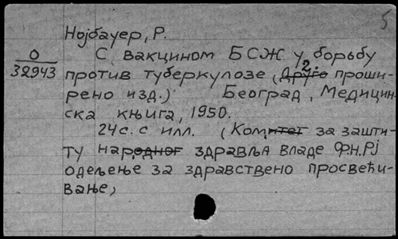 5
Нојбауер, Р.
О
32943
С вакцином БСЖ у борбу
против туберкулозе (2. проши-
рено изд.) Београд, Медицин-
ска књига, 1950.
24с. с илл. (Комитет за зашти-
ту народног здравља владе ФНРЈ
одељење за здравствено просвећи-
вање)